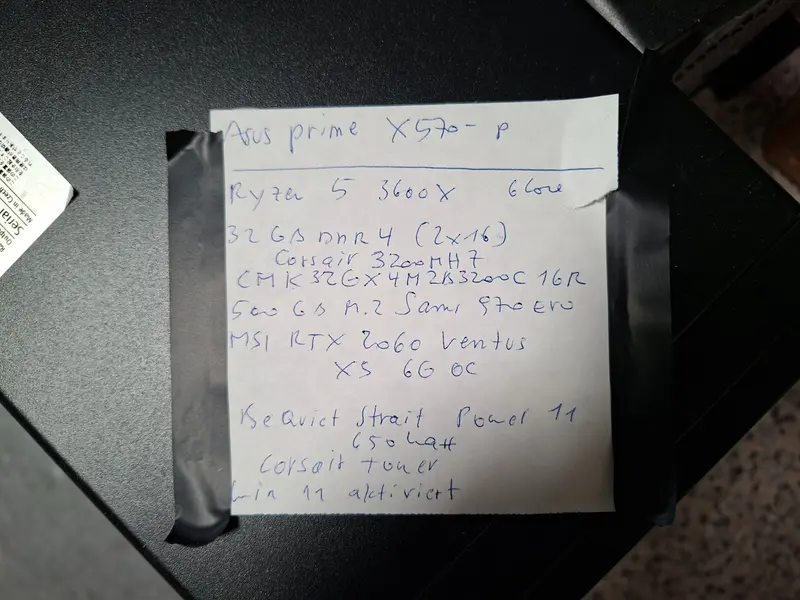 Asus prime X570-P
Ryzen 5 3600X 6 Core
32 GB DDR4 (2x16)
Corsair 3200MHZ
CMK32GX4M2B3200C16R
500 GB M.2 Sams 970 EVO
MSI RTX 2060 Ventus
XS 6G OC
Be Quiet Strait Power 11
650 Watt
Corsair Tower
Win 11 aktiviert
Serial
Made in